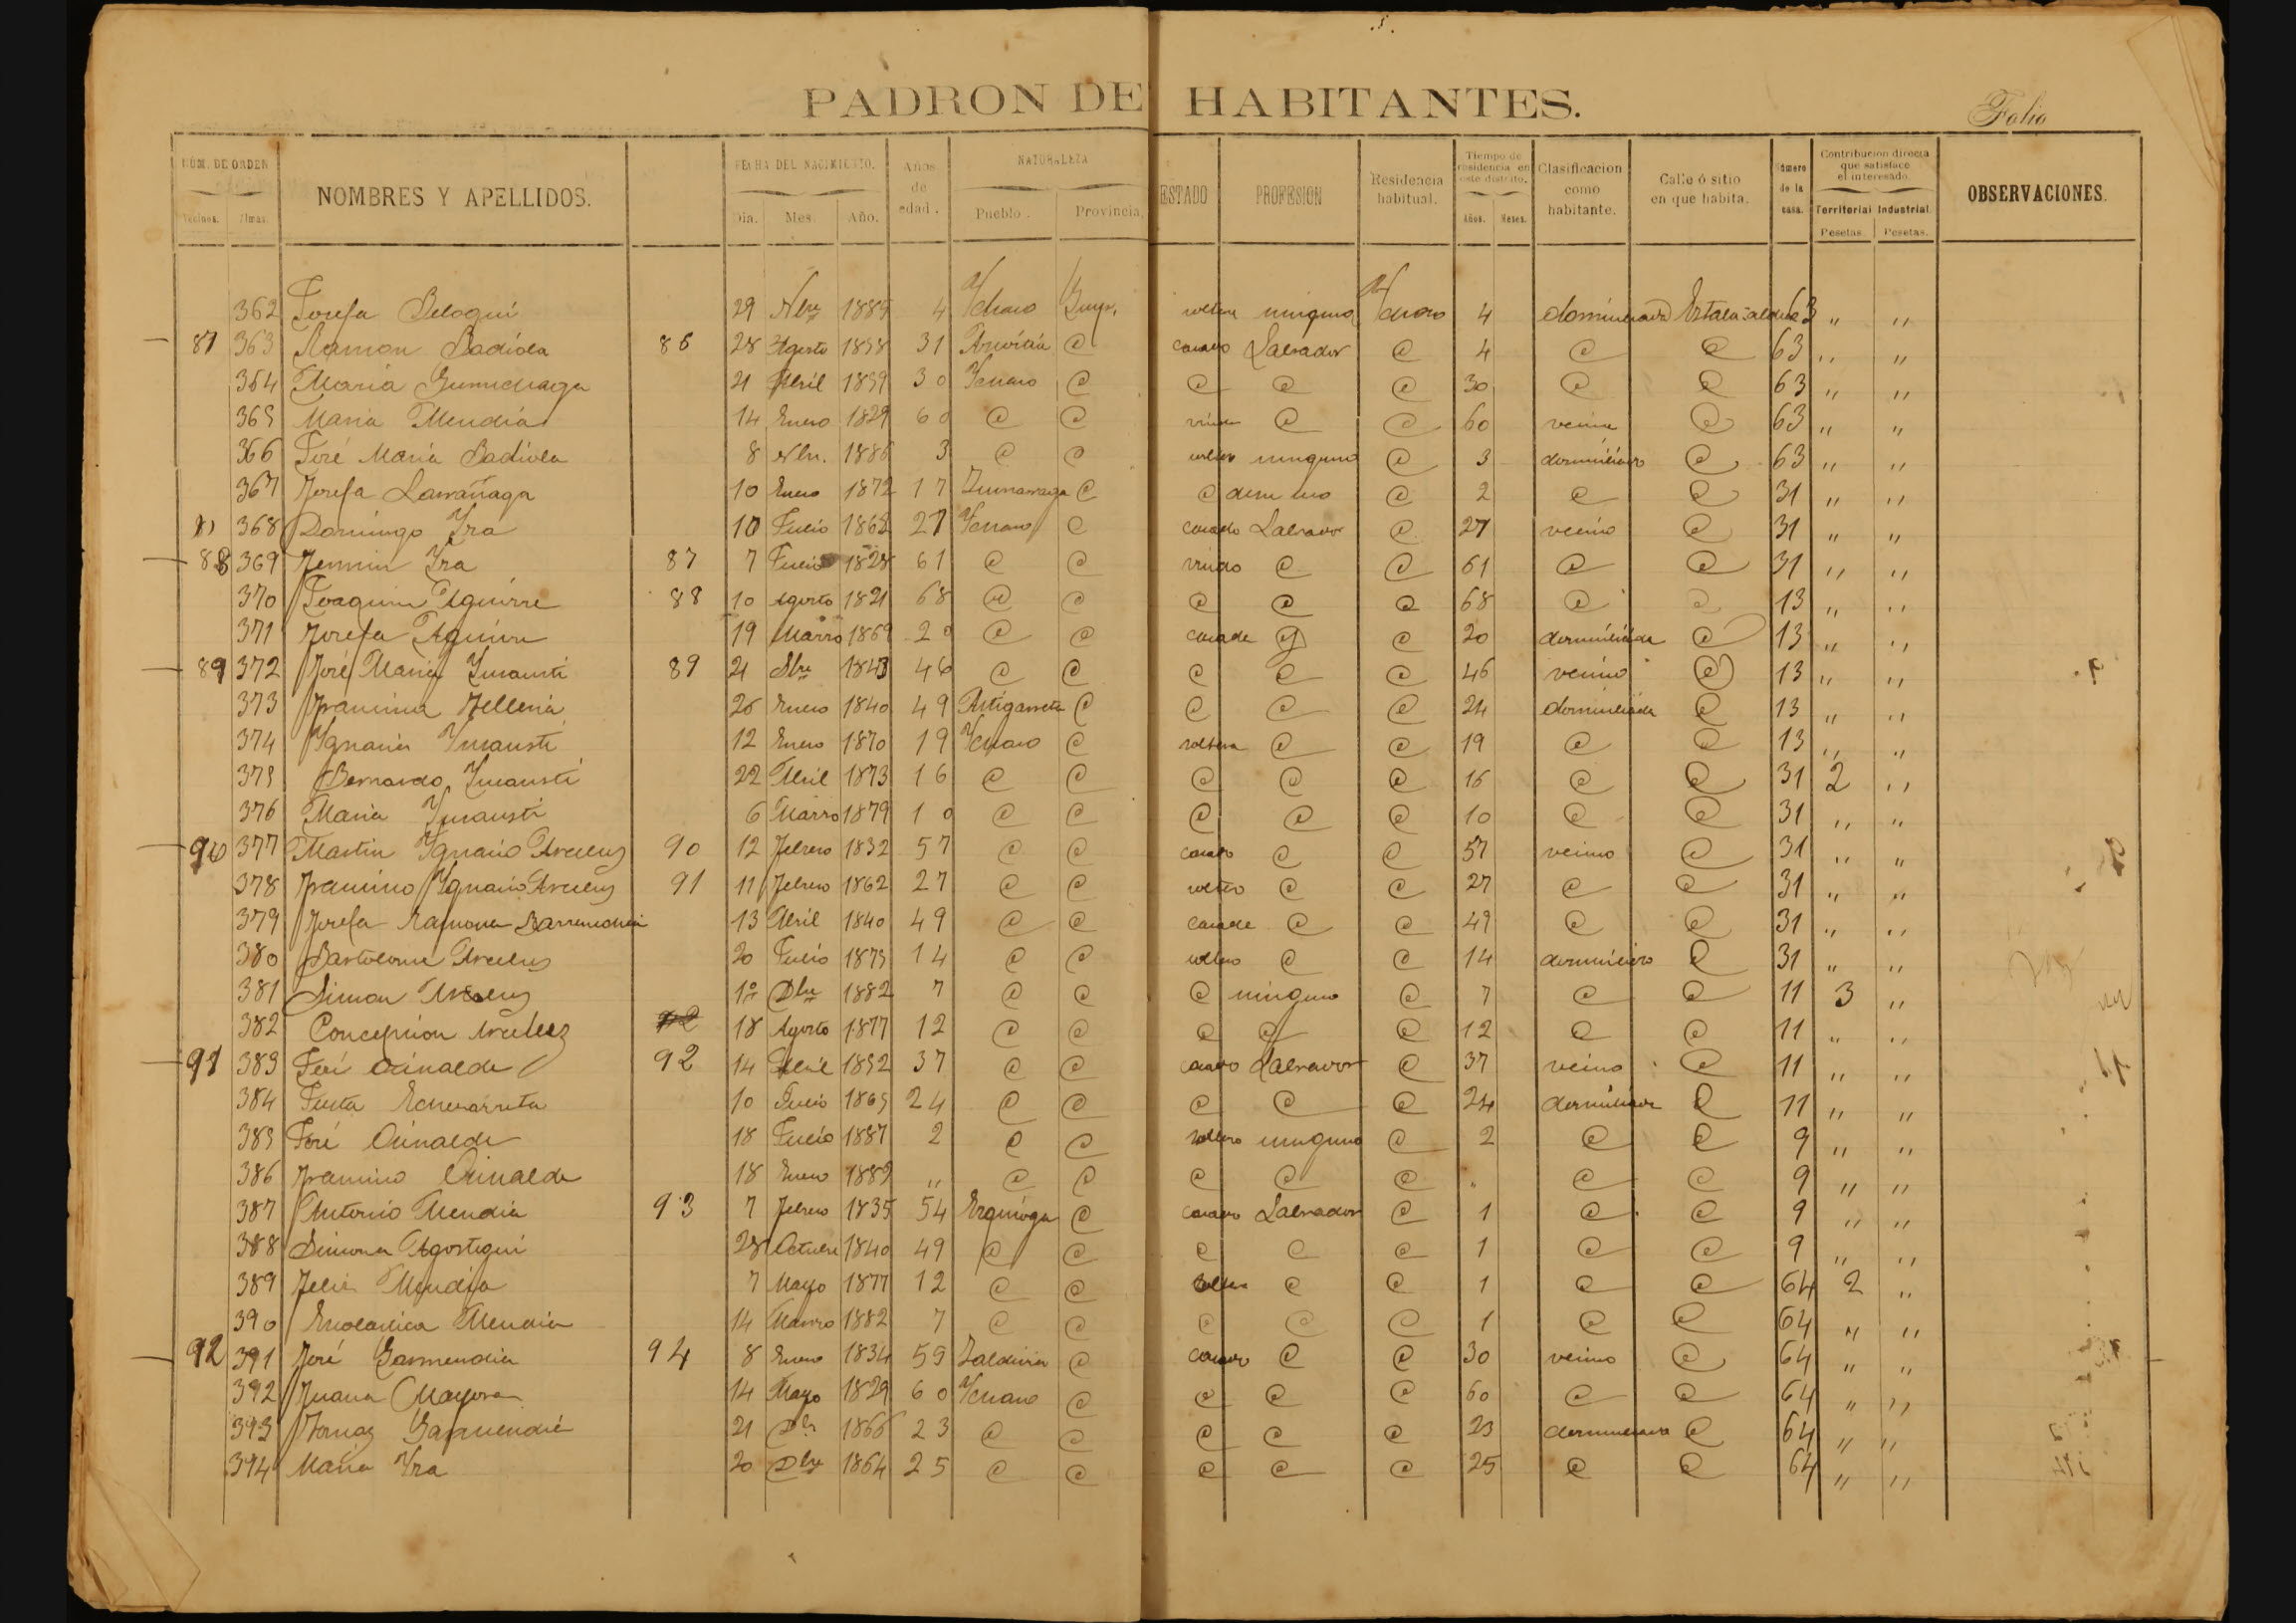 PADRON DE HABITANTES.
Folio
NÚM. DE ORDEN
Vecinos. Almas.
NOMBRES Y APELLIDOS.
FECHA DEL NACIMIENTO.
Dia. Mes. Año.
Años de edad.
NATURALEZA
Pueblo. Provincia.
ESTADO
PROFESION
Residencia habitual.
Tiempo de residencia en este distrito.
Años. Meses.
Clasificacion como habitante.
Calle ó sitio en que habita.
Número de la casa.
Contribucion directa que satisface el interesado.
Territorial Industrial
Pesetas. Pesetas.
OBSERVACIONES.
362 Josefa Beloqui 29 Nbre 1885 4 Ychaso Guip. soltera ninguna Ychaso 4 domiciliada 63 " "
87 363 Ramon Badiola 86 28 Agosto 1858 31 @ casado Labrador @ 4 @ @ 63 " "
364 Maria 21 Abril 1859 30 Ychaso @ @ @ @ 30 @ @ 63 " "
365 Maria Mendia 14 Enero 1829 60 @ @ viuda @ @ 60 vecina @ 63 " "
366 José Maria Badiola 8 Nbre. 1886 3 @ @ soltero ninguno @ 3 domiciliado @ 63 " "
367 Josefa Larrañaga 10 Enero 1872 17 Zumarraga @ @ @ 2 @ @ 31 " "
368 Domingo Yra 10 Julio 1862 27 Ychaso @ casado Labrador @ 27 vecino @ 31 " "
88 369 Fermin Yra 87 7 Julio 1828 61 @ @ viudo @ @ 61 @ @ 31 " "
370 Joaquin Aguirre 88 10 Agosto 1821 68 @ @ @ @ @ 68 @ @ 13 " "
371 Josefa Aguirre 19 Marzo 1869 20 @ @ casada @ @ 20 domiciliada @ 13 " "
89 372 José Maria Ynsausti 89 21 Sbre 1843 46 @ @ @ @ @ 46 vecino @ 13 " "
373 Francisca Telleria 26 Enero 1840 49 Astigarreta @ @ @ @ 24 domiciliada @ 13 " "
374 Ygnacia Ynsausti 12 Enero 1870 19 Ychaso @ soltera @ @ 19 @ @ 13 " "
375 Bernardo Ynsausti 22 Abril 1873 16 @ @ @ @ @ 16 @ @ 31 2 "
376 Maria Ynsausti 6 Marzo 1879 10 @ @ @ @ @ 10 @ @ 31 " "
90 377 Martin Ygnacio Arcelus 90 12 Febrero 1832 57 @ @ casado @ @ 57 vecino @ 31 " "
378 Francisco Ygnacio Arcelus 91 11 Febrero 1862 27 @ @ soltero @ @ 27 @ @ 31 " "
379 Josefa Ramona Barrenechea 13 Abril 1840 49 @ @ casada @ @ 49 @ @ 31 " "
380 Bartolome Arcelus 20 Julio 1875 14 @ @ soltero @ @ 14 domiciliado @ 31 " "
381 Simon Arcelus 1º Dbre 1882 7 @ @ @ ninguno @ 7 @ @ 11 3 "
382 Concepcion Arcelus 92 18 Agosto 1877 12 @ @ @ @ @ 12 @ @ 11 " "
91 383 José Orinalde 92 14 Abril 1852 37 @ @ casado Labrador @ 37 vecino @ 11 " "
384 Justa Echevarreta 10 Julio 1865 24 @ @ @ @ @ 24 domiciliada @ 11 " "
385 José Orinalde 18 Julio 1887 2 @ @ soltero ninguno @ 2 @ @ 9 " "
386 Francisco Orinalde 18 Enero 1889 " @ @ @ @ @ " @ @ 9 " "
387 Antonio Mendia 93 7 Febrero 1835 54 Ezquioga @ casado Labrador @ 1 @ @ 9 " "
388 Simona Agostegui 28 Octubre 1840 49 @ @ @ @ @ 1 @ @ 9 " "
389 Mendia 7 Mayo 1877 12 @ @ soltera @ @ 1 @ @ 64 2 "
390 Escolastica Mendia 14 Marzo 1882 7 @ @ @ @ @ 1 @ @ 64 " "
92 391 José Garmendia 94 8 Enero 1834 59 Zaldivia @ casado @ @ 30 vecino @ 64 " "
392 Juana Mayora 14 Mayo 1829 60 Ychaso @ @ @ @ 60 @ @ 64 " "
393 Tomas Garmendia 21 1866 23 @ @ @ @ @ 23 domiciliado @ 64 " "
394 Maria Yra 20 Dbre 1864 25 @ @ @ @ @ 25 @ @ 64 " "